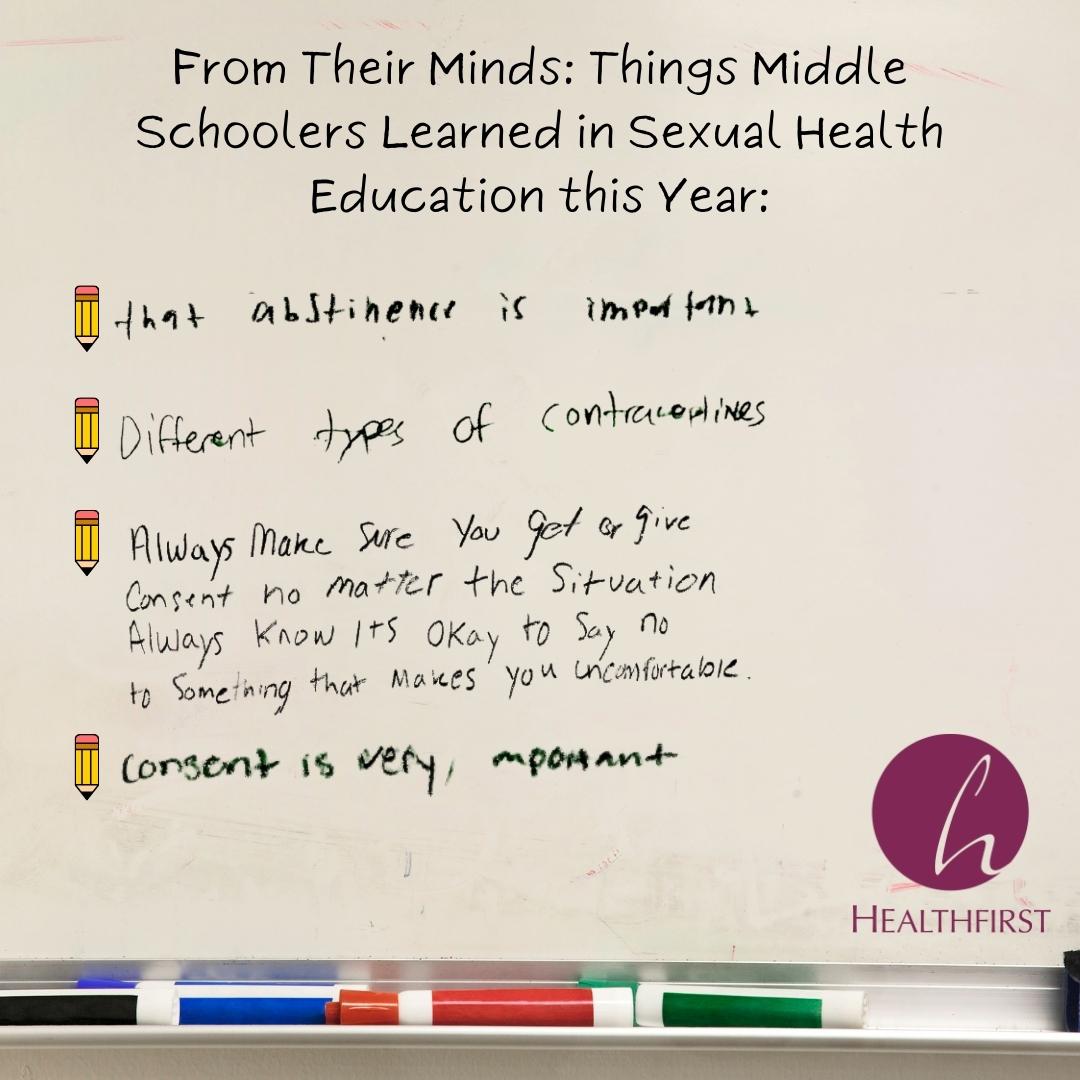 From Their Minds: Things Middle
Schoolers Learned in Sexual Health
Education this Year:
that abstinence is important
Different types of contraceptives
Always Make Sure You get or give
Consent no matter the Situation
Always Know Its Okay to Say no
to Something that Makes you uncomfortable.
consent is very, mportant
h
HEALTHFIRST